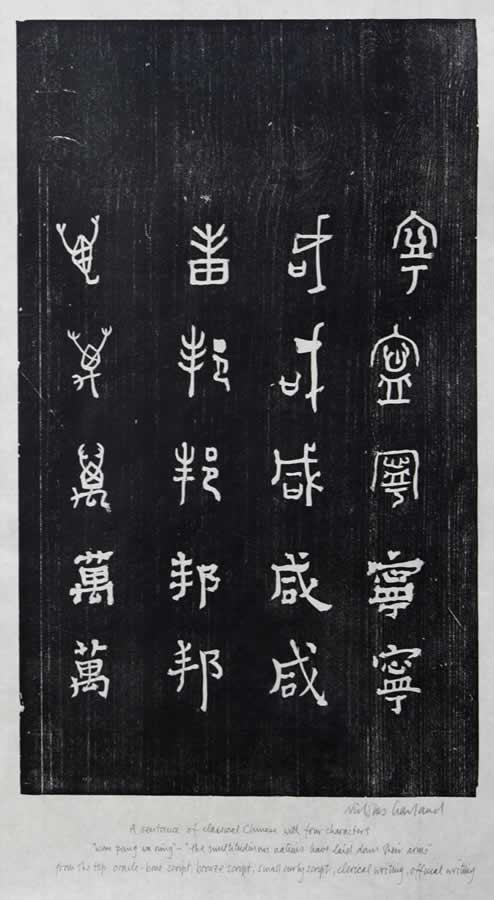 萬 邦 咸 寧
萬 邦 咸 寧
萬 邦 咸 寧
萬 邦 咸 寧
萬 邦 咸 寧
Nicholas Garland
A sentence of classical Chinese with four characters
"wan pang ning" – "the multitudinous nations have laid down their arms"
from the top oracle-bone script, bronze script, small curly script, clerical writing, official writing